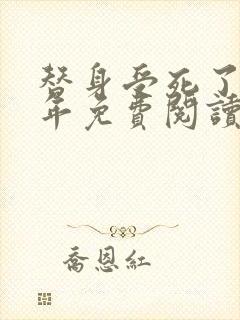 替身受死了
年免費閱讀
喬恩紅